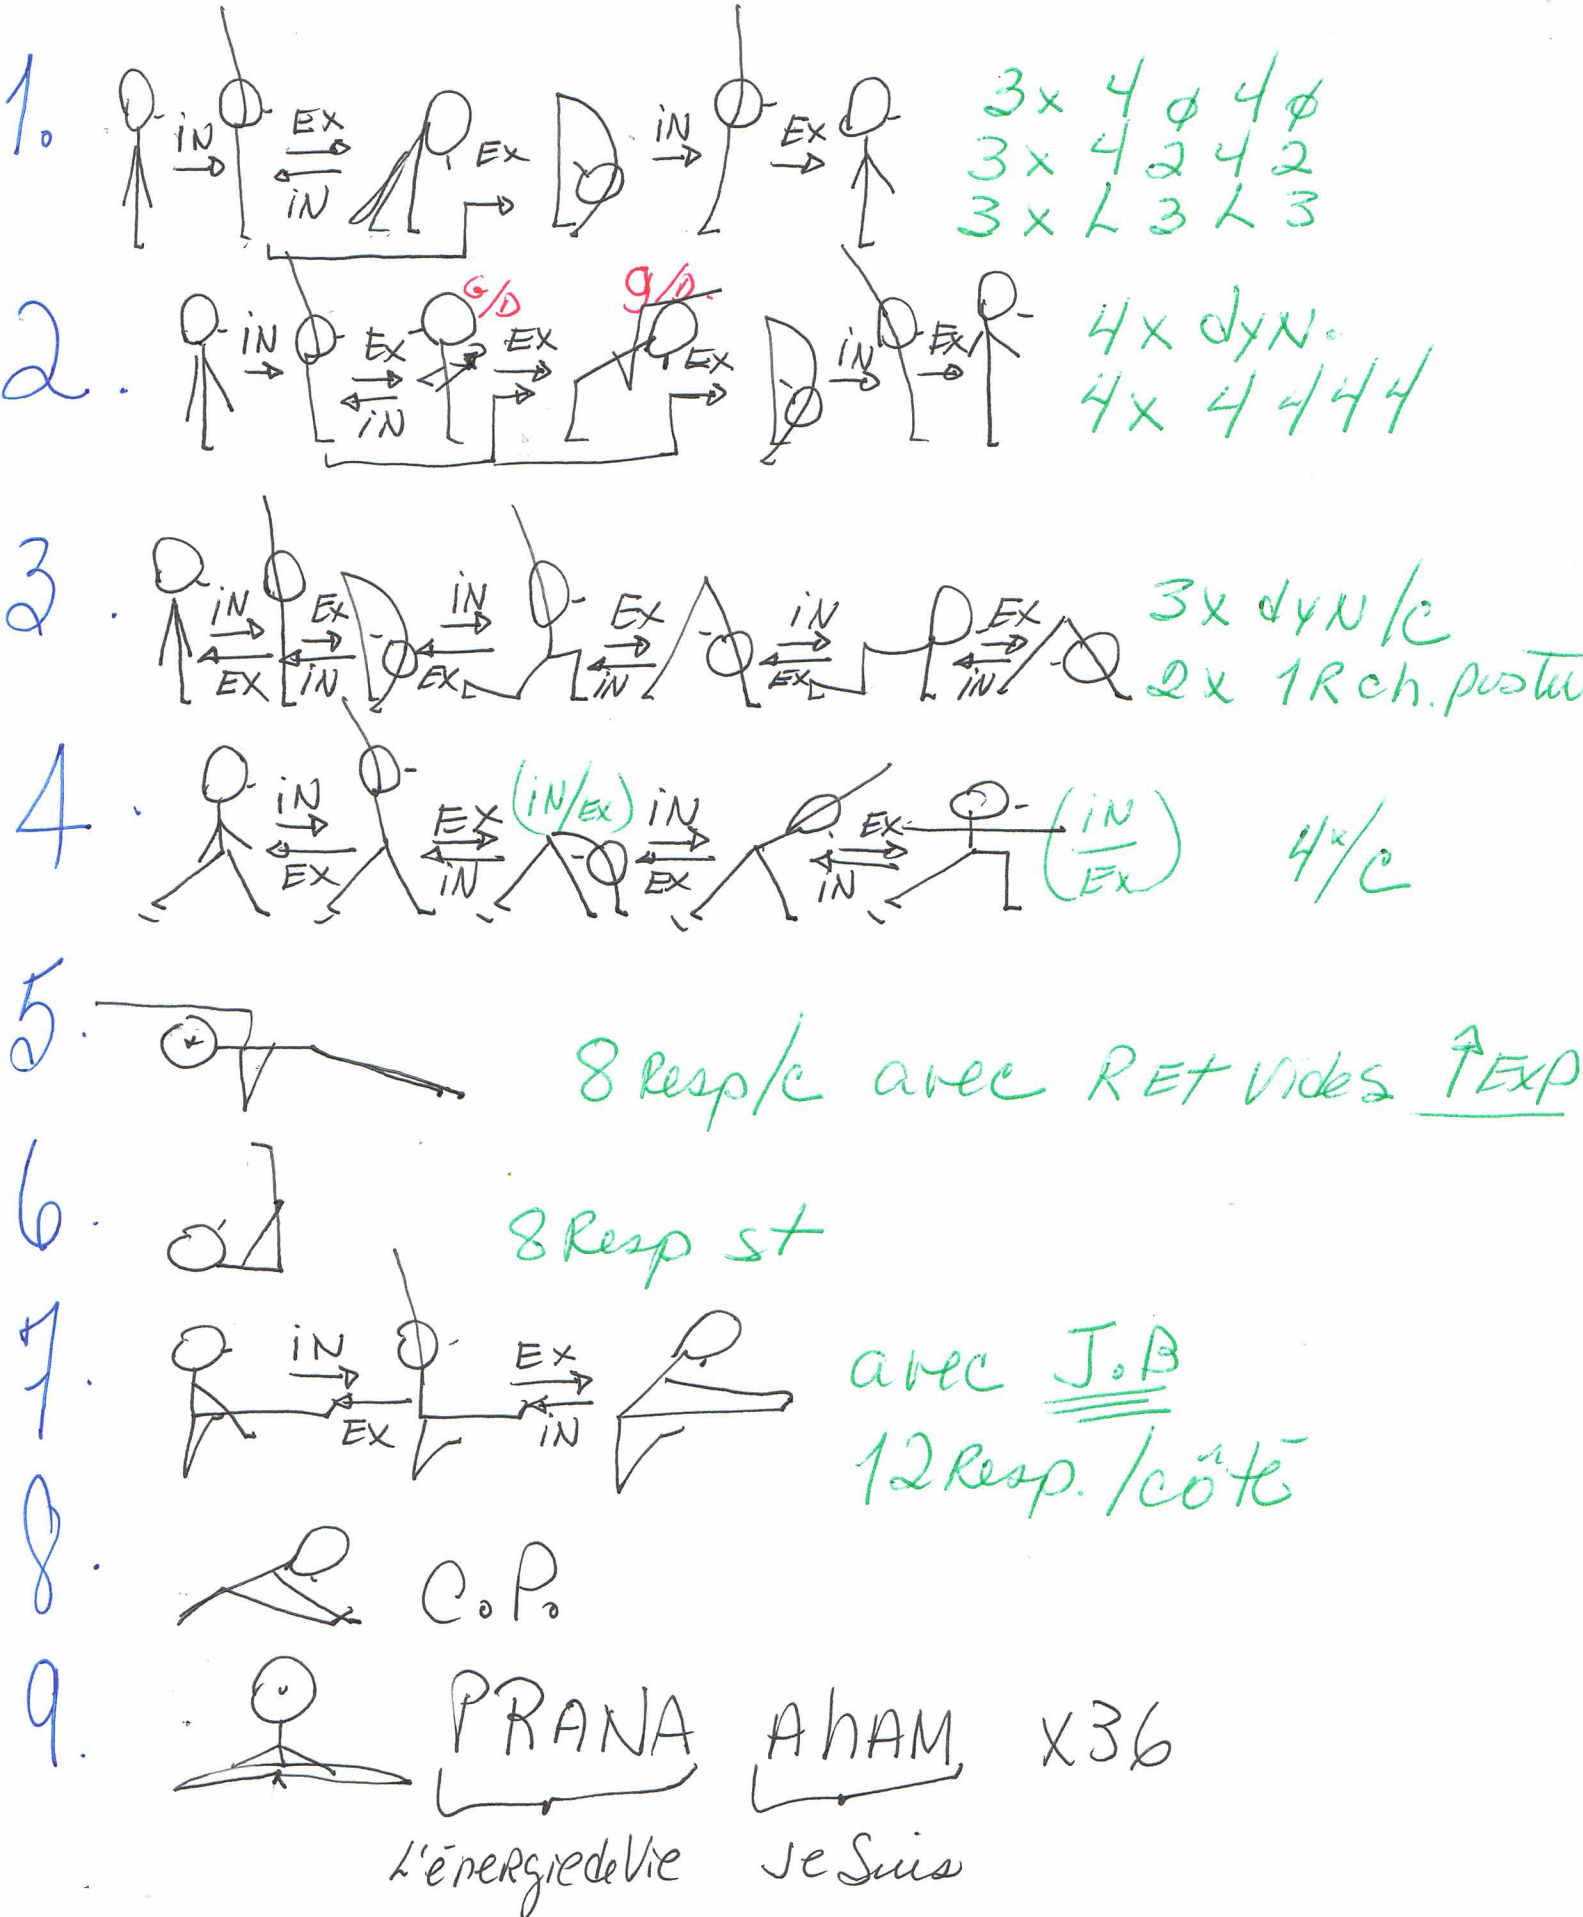 1. iN EX iN EX iN EX 3x 4 ø 4 ø
3x 4 2 4 2
3x L 3 L 3
2. iN EX iN G/D EX g/D EX iN EX 4x dyN.
4x 4 4 4 4
3. iN EX EX iN iN EX EX iN iN EX EX iN 3x dyN/C
2x 1R ch. postu
4. iN EX EX iN (iN/EX) iN EX EX iN (iN/EX) 4x/C
5. 8 Resp/c avec REt vides ↑EXP
6. 8 Resp st
7. iN EX EX iN avec J.B
12 Resp. /côté
8. C.P.
9. PRANA AhAM x36
L'énergie de Vie Je Suis